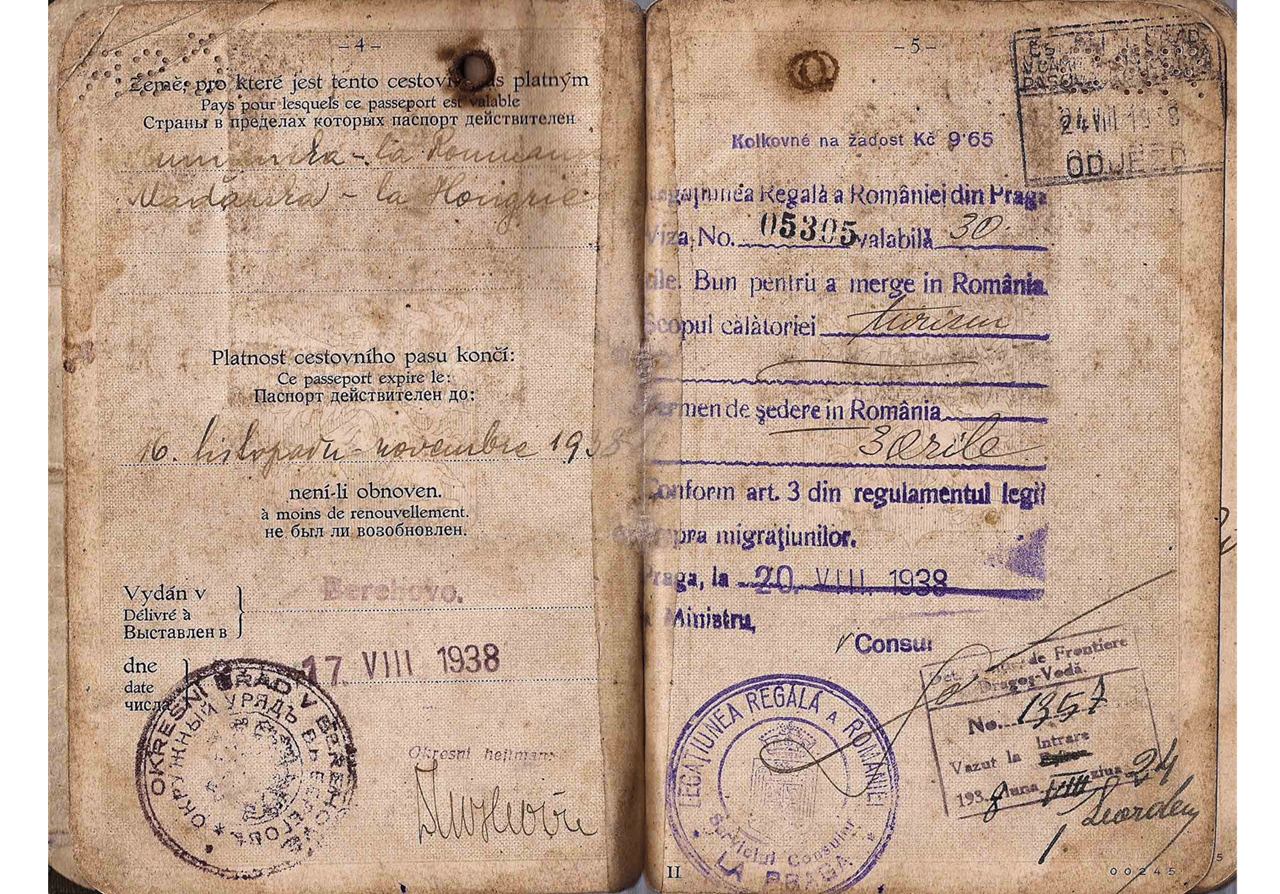 – 4 –
Země, pro které jest tento cestovní pas platným
Pays pour lesquels ce passeport est valable
Страны в пределах которых паспорт действителен
Rumunska - la Roumanie
Maďarska - la Hongrie
Platnost cestovního pasu končí:
Ce passeport expire le:
Паспорт действителен до:
16. listopadu - novembre 1938
není-li obnoven.
à moins de renouvellement.
не был ли возобновлен.
Vydán v
Délivré à
Выставлен в
Berehovo.
dne
date
числа
17. VIII 1938
OKRESNÍ ÚŘAD V BEREHOVĚ
ОКРУЖНЫЙ УРЯДЪ ВЪ БЕРЕГОВѢ
Okresní hejtman:
– 5 –
ODJEZD
24 VIII 1938
Kolkovné na žádost Kč 9·65
Legațiunea Regală a României din Praga
Viza No. 05305 valabilă 30
zile. Bun pentru a merge in România.
Scopul călătoriei turism
Termen de ședere in România
3 zile
Conform art. 3 din regulamentul legii
asupra migrațiunilor.
Praga, la 20. VIII. 1938
Ministru,
Consul
LEGAȚIUNEA REGALĂ A ROMÂNIEI
Serviciul Consular
LA PRAGA
de Frontiere
Dragoș-Vodă.
No. 1357
Intrare
Vazut la
1938 luna VIII ziua 24
II
00245
5